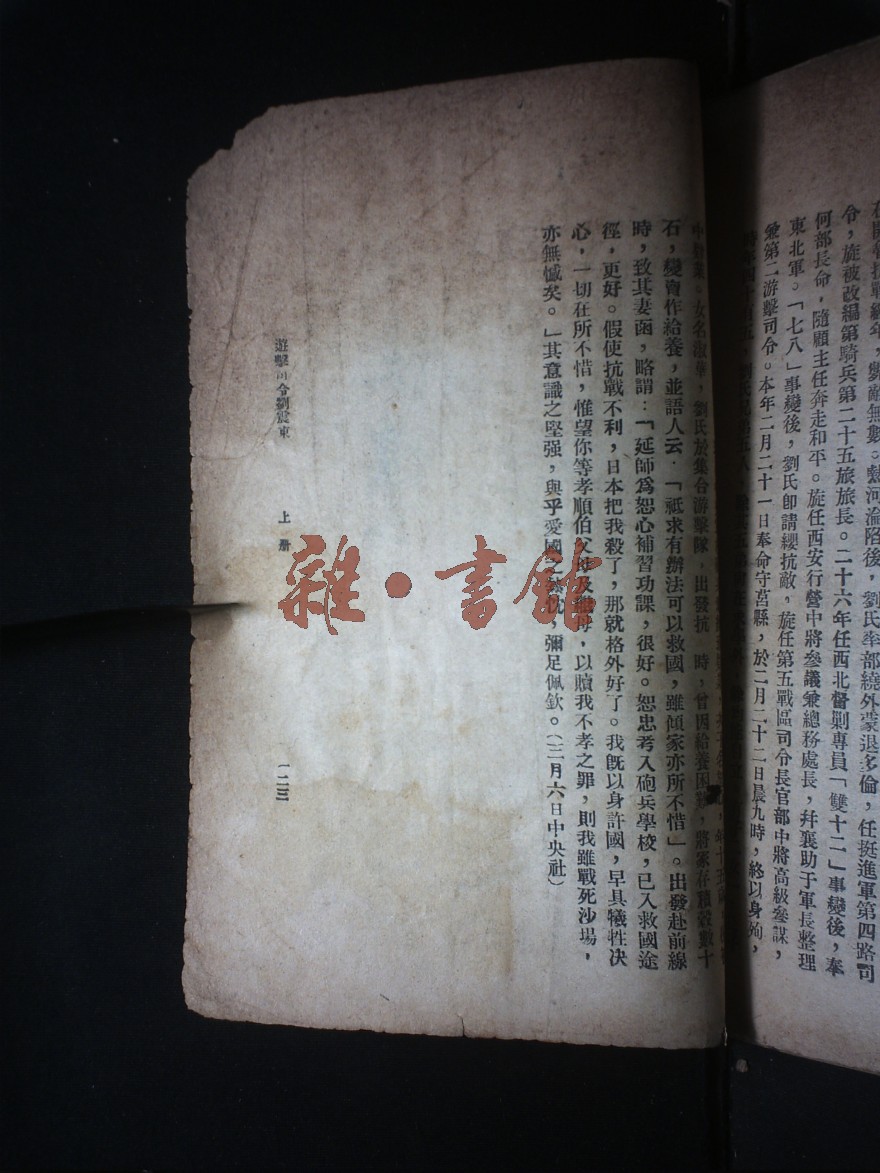 令，旋被改編第騎兵第二十五旅旅長。二十六年任西北督剿專員「雙十二」事變後，奉
何部長命，隨顧主任奔走和平。旋任西安行營中將參議兼總務處長，幷襄助于軍長整理
東北軍。「七八」事變後，劉氏卽請纓抗敵，旋任第五戰區司令長官部中將高級參謀，
兼第二游擊司令。本年二月二十一日奉命守莒縣，於二月二十二日晨九時，終以身殉，
女名淑華，劉氏於集合游擊隊，出發抗 時，曾因給養困難，將家存積穀數十
石，變賣作給養，並語人云．「祗求有辦法可以救國，雖傾家亦所不惜」。出發赴前線
時，致其妻函，略謂：「延師爲恕心補習功課，很好。恕忠考入砲兵學校，已入救國途
徑，更好。假使抗戰不利，日本把我殺了，那就格外好了。我旣以身許國，早具犧牲决
心，一切在所不惜，惟望你等孝順伯父母及繼母，以贖我不孝之罪，則我雖戰死沙場，
亦無憾矣。」其意識之堅强，與乎愛國之熱忱，彌足佩欽。（三月六日中央社）
遊擊司令劉震東 上册 一二三
雜·書館